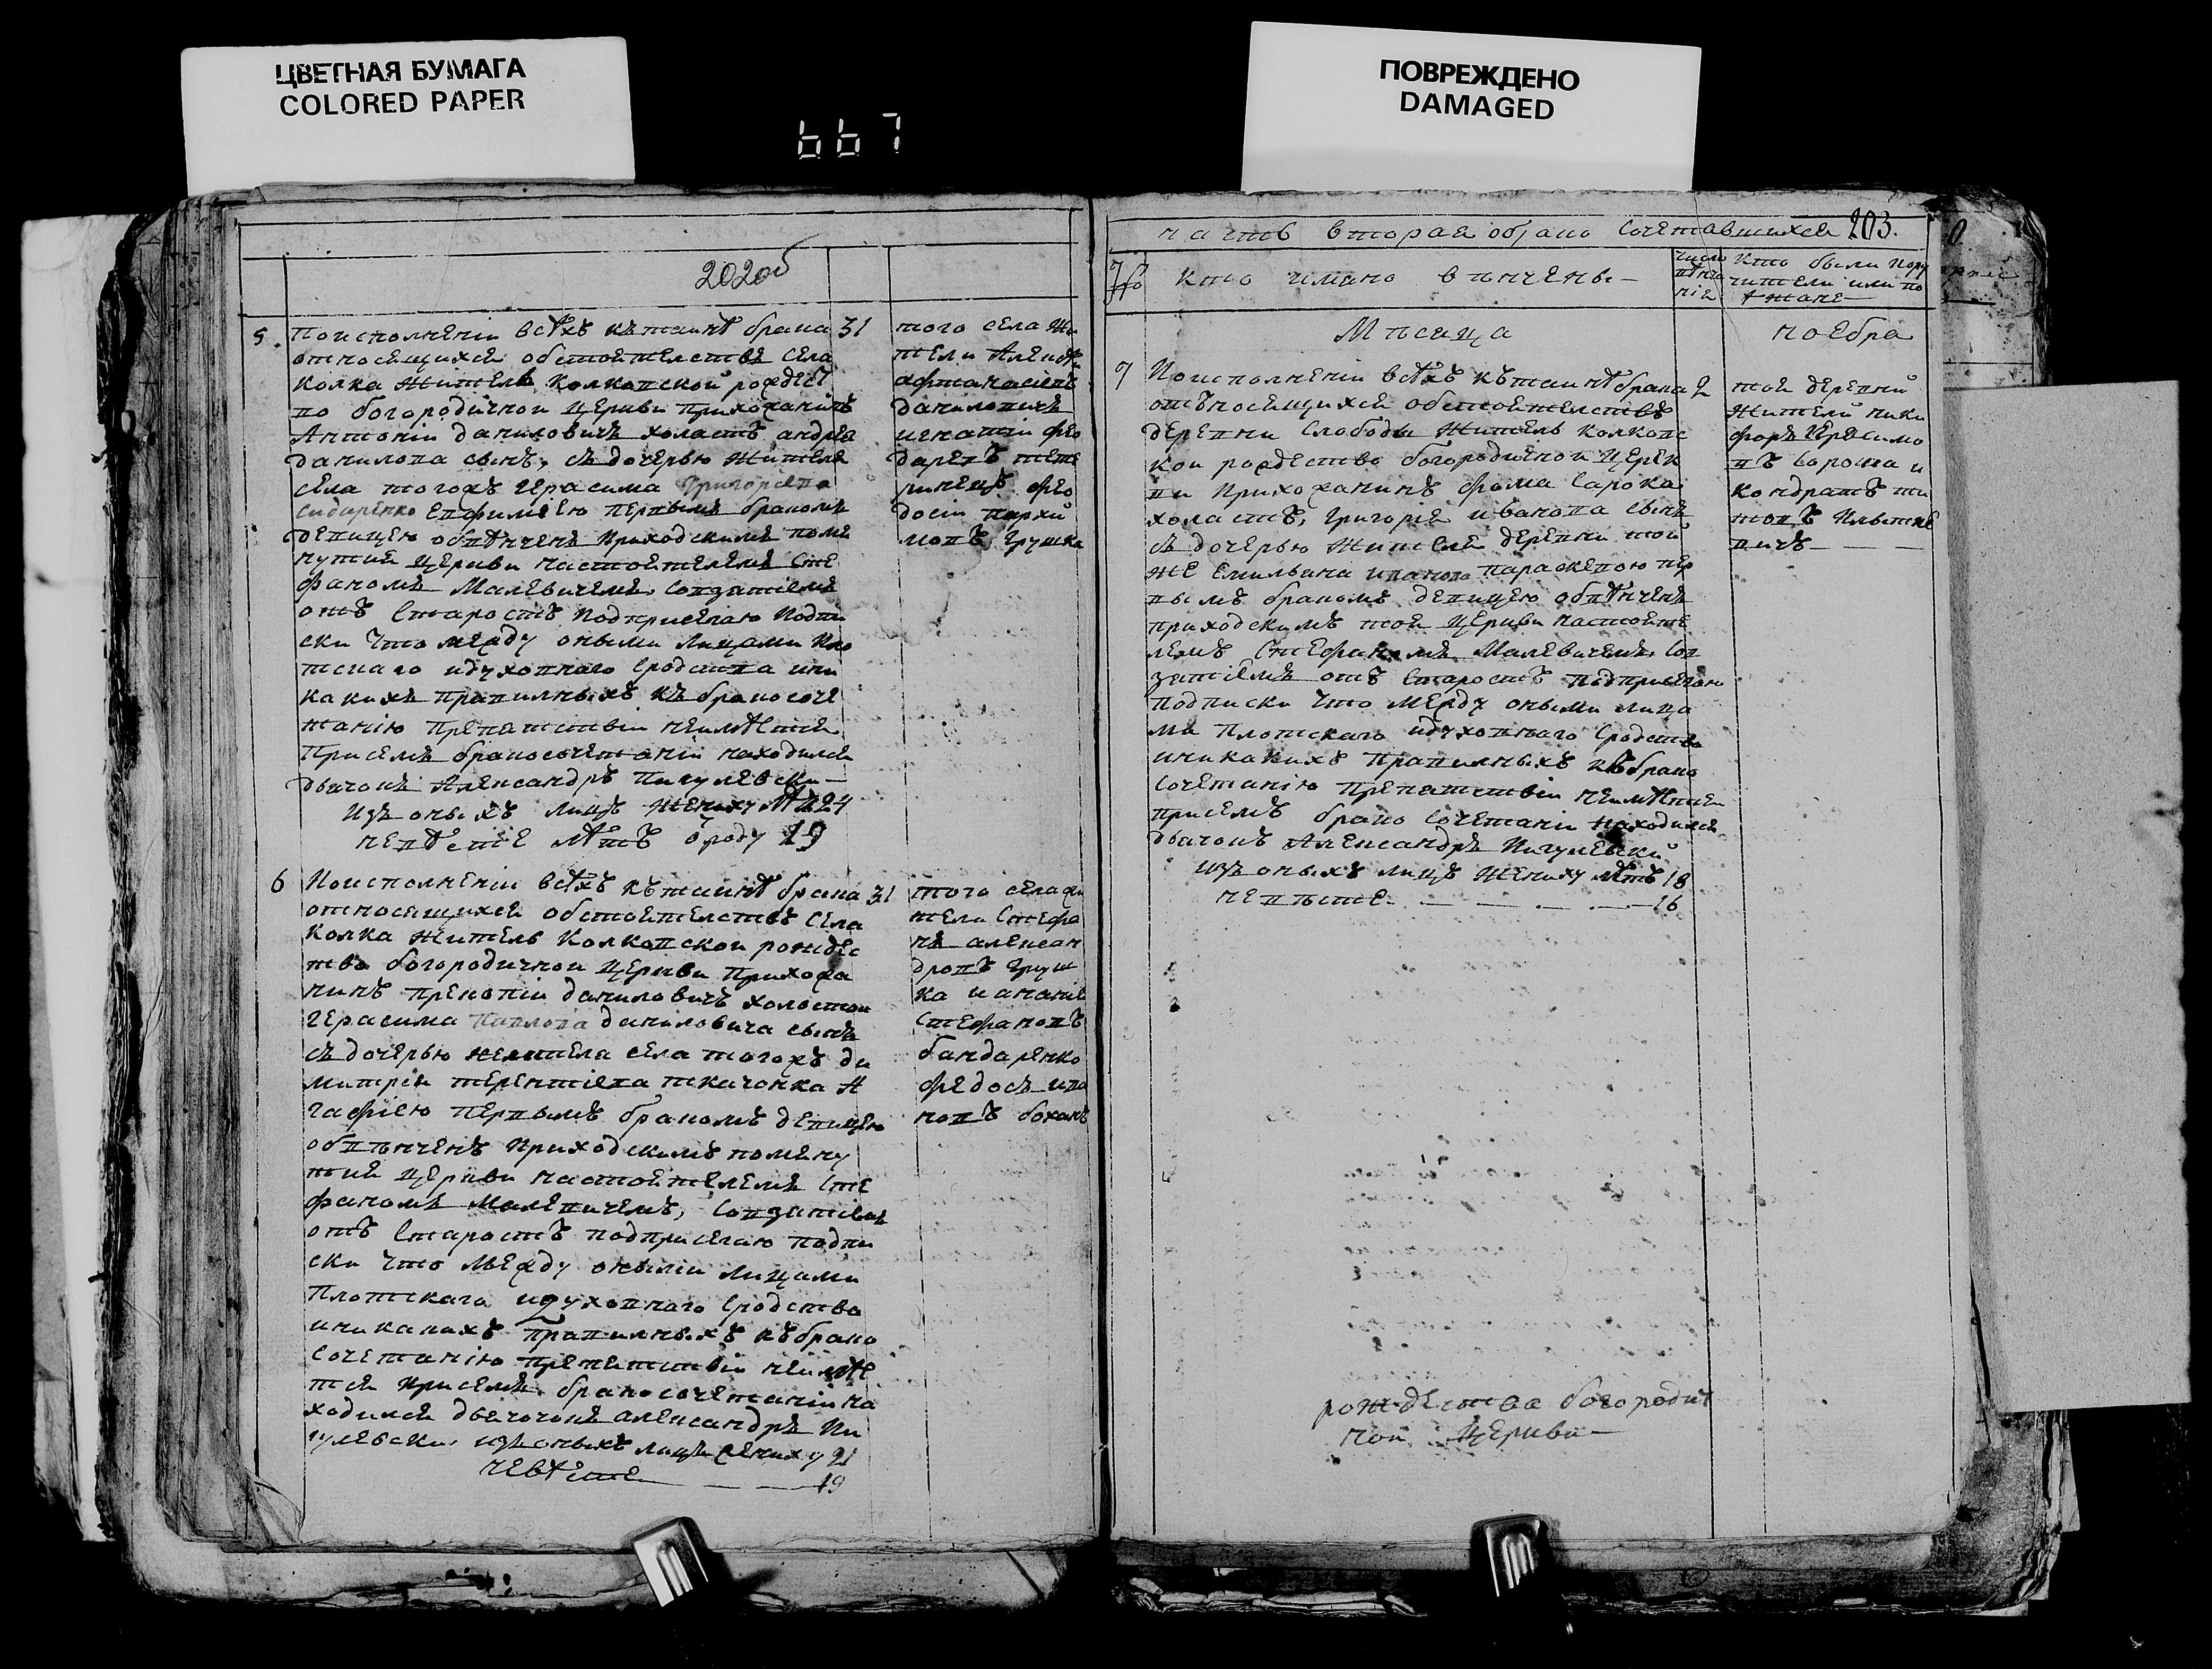 ЦВЕТНАЯ БУМАГА
COLORED PAPER
667
ПОВРЕЖДЕНО
DAMAGED
202об
5. Поисполненіи всѣхъ къ таинѣ брака 31
относящихся обстоятелствъ села
Колка житель Колковской рождест
во богородичной церкви прихожанинъ
Антоній Даниловичъ холастъ андрея
данилова сынъ, съ дочерью жителя
села тогожъ Герасима Григорева
Сидаренко Епфиміею первымъ бракомъ
девицею обвѣнченъ приходскимъ помя
нутия церкви настоятелемъ Сте
фаномъ Малевичемъ, Совзятіемъ
отъ Старостъ подприсягаю подпи
ски Что между оными лицами пло
тскаго идуховнаго сродства ини
какихъ правилныхъ къ бракосоче
танію препятствіи неимѣется
Присемъ бракосочетаніи находился
дьячокъ Александръ Пигулевски
Изъ оныхъ лицъ жениху лѣт 24
невѣсте лѣтъ ѿроду 19
того села жи
тели Алексѣ
афтанасіевъ
даниловичъ
игнатіи фео
даревъ тете
ринецъ фео
досіи пархи
мовъ грушка
6 Поисполненіи всѣхъ къ таинѣ брака 31
относящихся обстоятелствъ села
Колка житель Колковской рождес
тво богородичной церкви прихожа
нинъ прекопіи даниловичъ холостой
герасима Павлова даниловича сынъ
съ дочерью жителя села тогожъ ди
митрія терентіева ткачонка А
гафіею первымъ бракомъ девицею
обвѣнченъ приходскимъ помяну
тия церкви настоятелемъ Сте
фаномъ Малевичемъ, Совзятіемъ
отъ Старостъ подприсягаю подпи
ски Что между оными лицами
плотскаго идуховнаго сродства
иникакихъ правилныхъ къ брако
сочетанію препятствіи неимѣе
тся присемъ бракосочетаніи на
ходился дьячокъ александръ Пи
гулевски изъ оныхъ лицъ жениху 21
невѣсте 19
того села жи
тели Стефа
нъ алексан
дровъ груш
ка и ананіи
Стефановъ
бандаренко
федосъ ива
новъ боханъ
часть вторая обрако сочетавшихся 203.
кто имано вѣнчены
число
вѣнча
нія
кто были пору
чители или по
ѣжане
Мѣсяца ноебра
7 Поисполненіи всѣхъ къ таинѣ брака 2
отъносящихся обстоятелствъ
деревни Слободы житель Колковс
кой рождество богородичной церк
ви прихожанинъ фома Сарока
холастъ, Григорія иванова сынъ
съ дочерью жителя деревни той
же Емильяна иванова параскевою пер
вымъ бракомъ девицею обвѣнченъ
приходскимъ той церкви настояте
лемъ Стефаномъ Малевичемъ, Сов
зятіемъ отъ Старостъ подприсягаю
подписки Что между оными лица
ми плотскаго идуховнаго сродства
иникакихъ правилныхъ къ брако
сочетанію препятствіи неимѣется
присемъ брако сочетаніи находился
дьячокъ Александръ Пигулевски
изъ оныхъ лицъ жениху лѣтъ 18
невѣсте 16
тоя деревни
жители ники
форъ
въ Сорока и
кондратъ ти
товъ
вичъ
рождества богородич
ной церкви